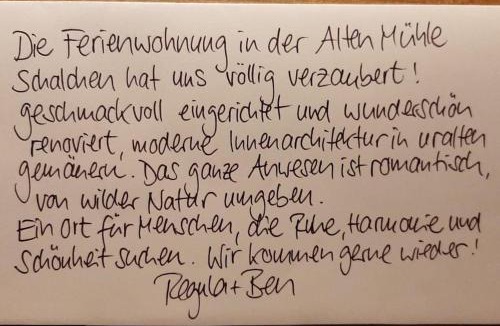 Die Ferienwohnung in der Alten Mühle
Schalchen hat uns völlig verzaubert!
geschmackvoll eingerichtet und wunderschön
renoviert, moderne Innenarchitektur in uralten
gemäuern. Das ganze Anwesen ist romantisch,
von wilder Natur umgeben.
Ein Ort für Menschen, die Ruhe, Harmonie und
Schönheit suchen. Wir kommen gerne wieder!
Regula + Ben